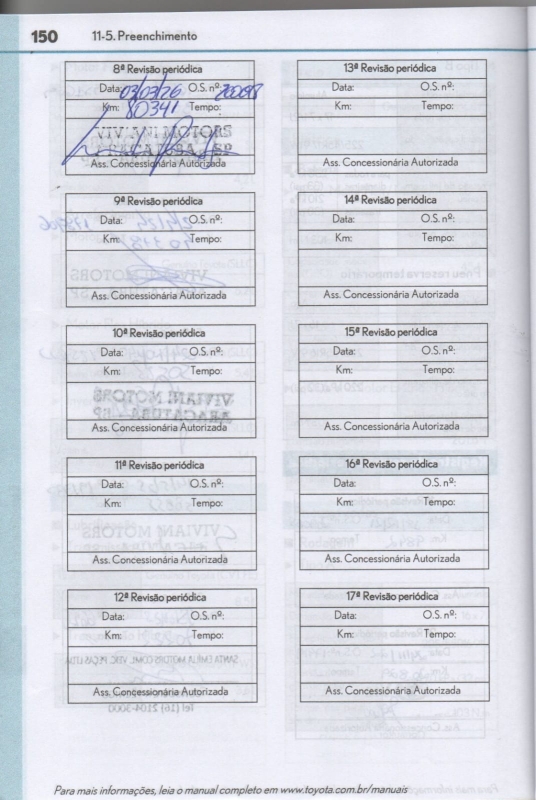 150 11-5. Preenchimento
8ª Revisão periódica
Data: 03/03/26 O.S. nº:
Km: 80341 Tempo:
VIVIANI MOTORS
ARAÇATUBA SP
Ass. Concessionária Autorizada
9ª Revisão periódica
Data: O.S. nº:
Km: Tempo:
Ass. Concessionária Autorizada
10ª Revisão periódica
Data: O.S. nº:
Km: Tempo:
Ass. Concessionária Autorizada
11ª Revisão periódica
Data: O.S. nº:
Km: Tempo:
Ass. Concessionária Autorizada
12ª Revisão periódica
Data: O.S. nº:
Km: Tempo:
Ass. Concessionária Autorizada
13ª Revisão periódica
Data: O.S. nº:
Km: Tempo:
Ass. Concessionária Autorizada
14ª Revisão periódica
Data: O.S. nº:
Km: Tempo:
Ass. Concessionária Autorizada
15ª Revisão periódica
Data: O.S. nº:
Km: Tempo:
Ass. Concessionária Autorizada
16ª Revisão periódica
Data: O.S. nº:
Km: Tempo:
Ass. Concessionária Autorizada
17ª Revisão periódica
Data: O.S. nº:
Km: Tempo:
Ass. Concessionária Autorizada
Para mais informações, leia o manual completo em www.toyota.com.br/manuais